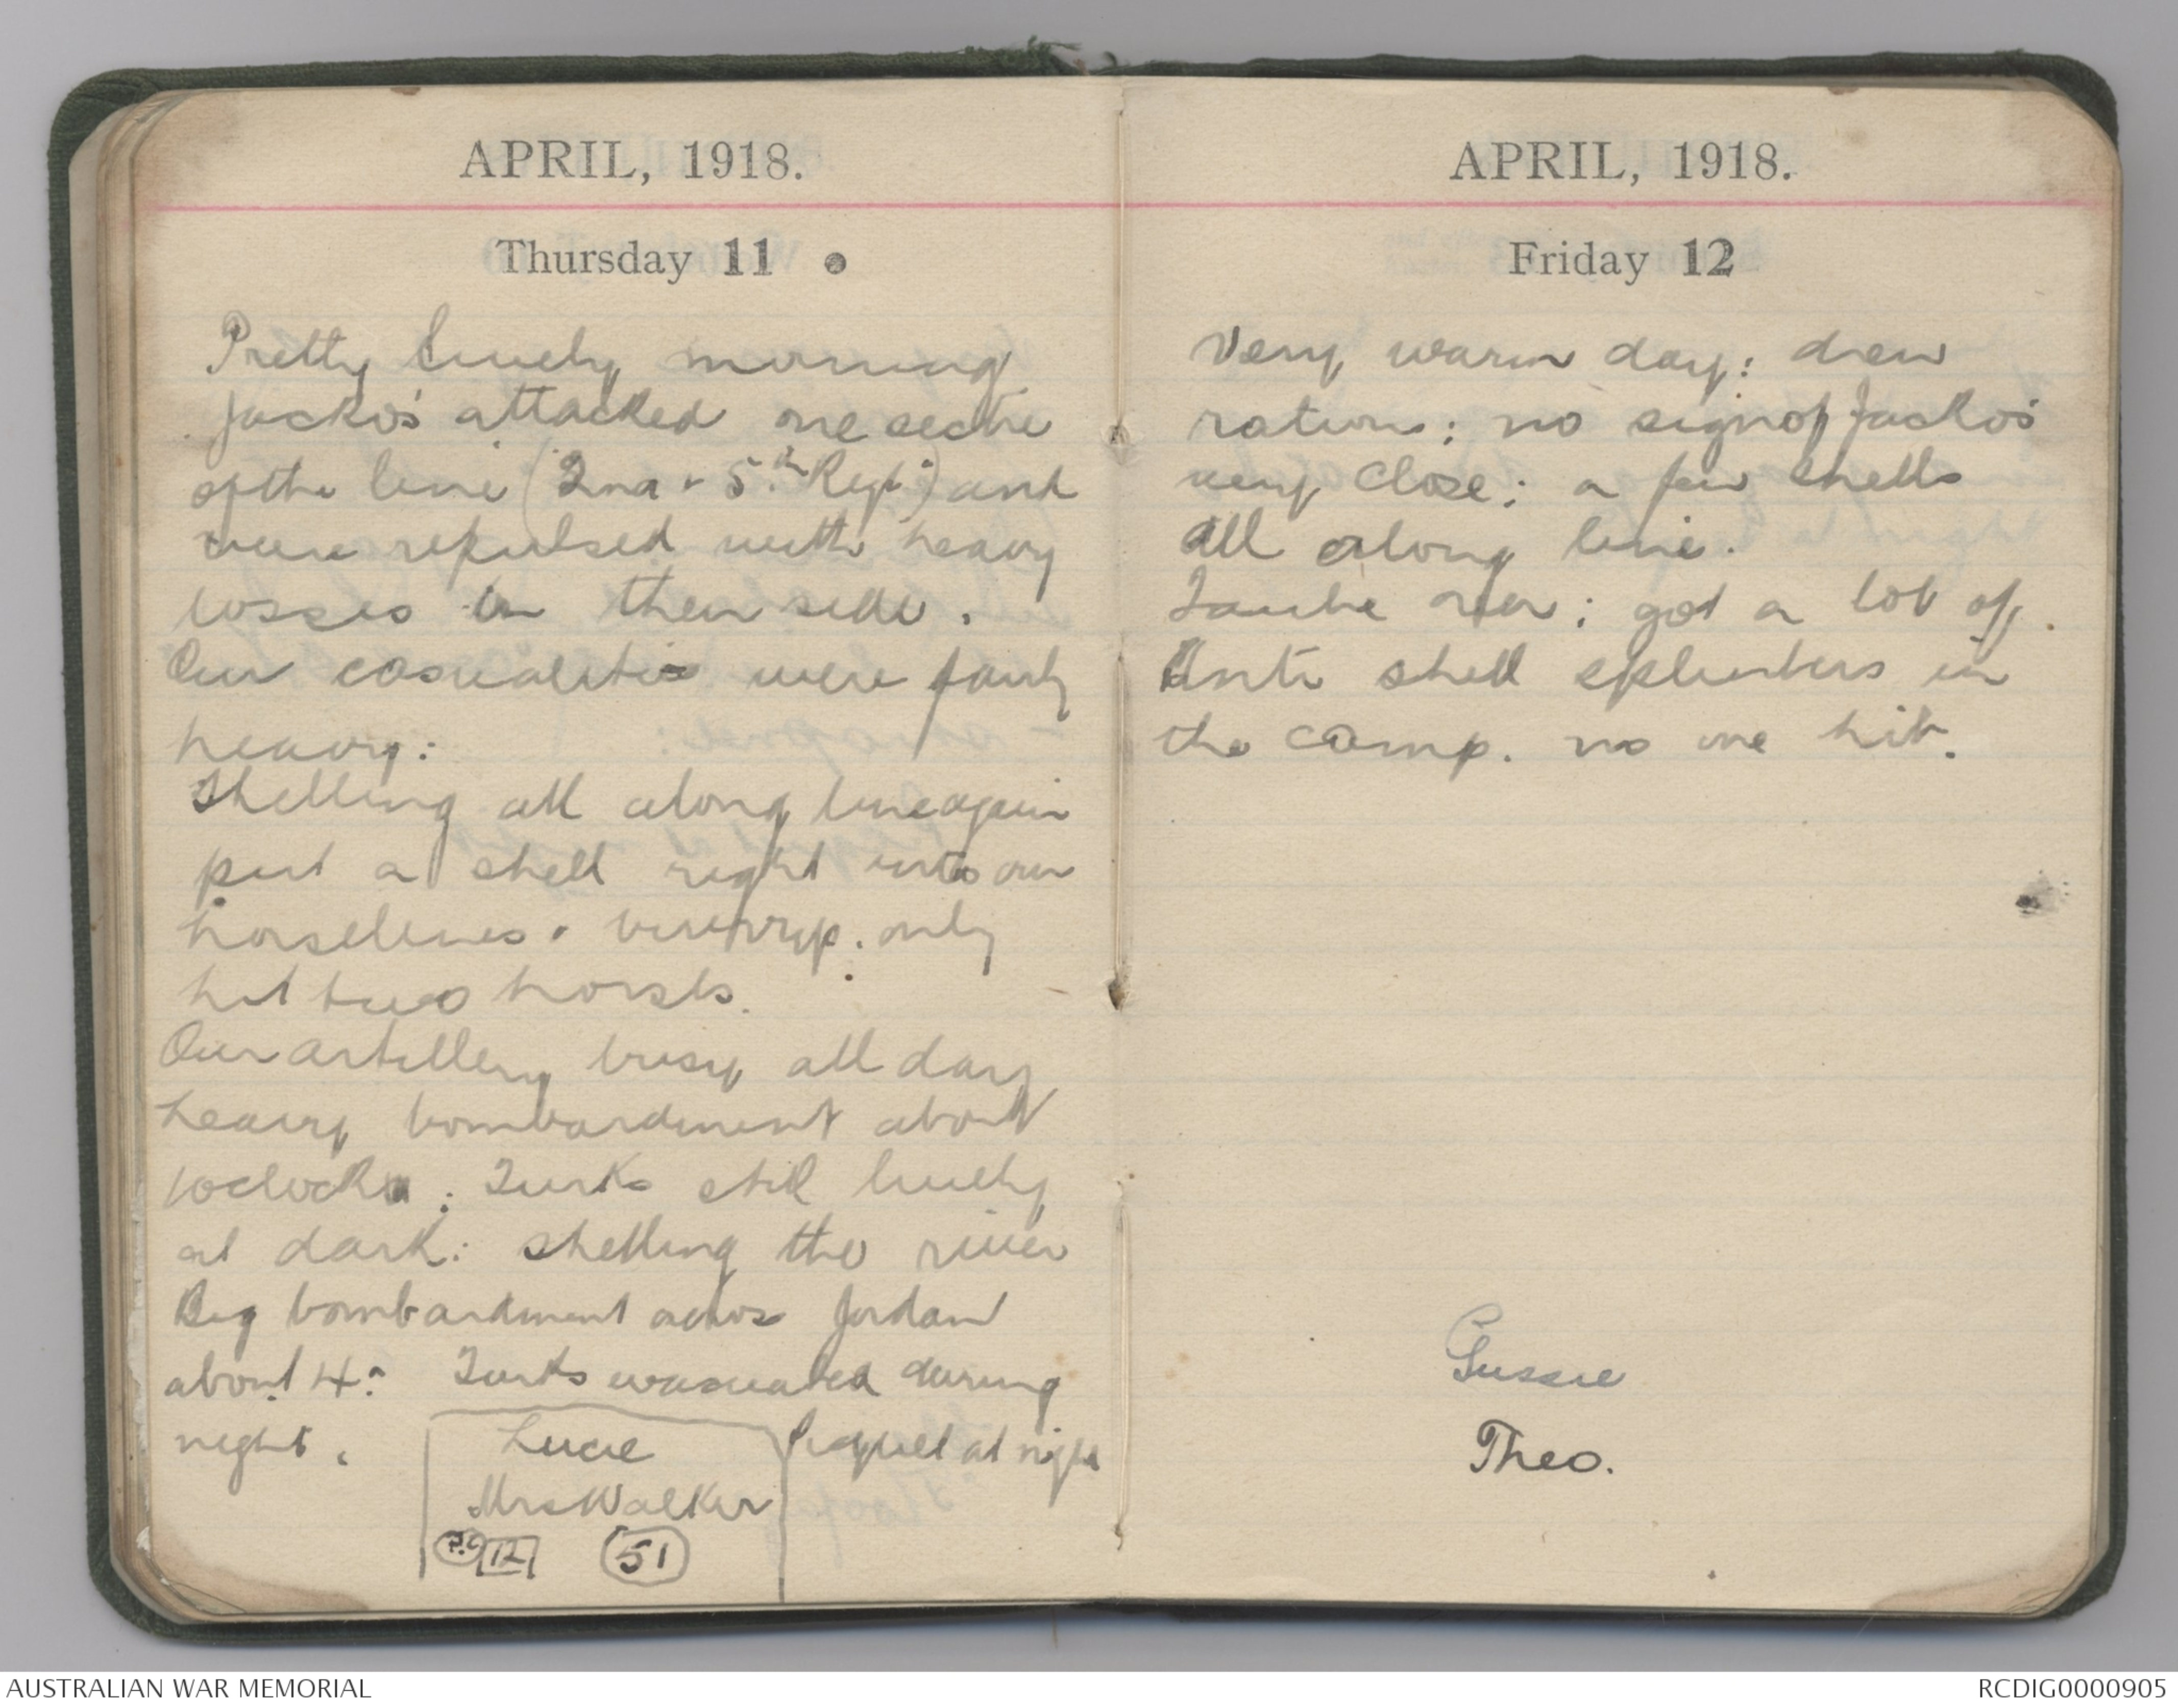 APRIL, 1918.
Thursday 11
Pretty lively morning
Jacko's attacked one sectre
of the line (2nd & 5th Regt) and
were repulsed with heavy
losses on their side.
Our casualities were fairly
heavy:
Shelling all along line again
put a shell right into our
horselines & bivvys. only
hit two horses.
Our artillery busy all day
heavy bombardment about
1oclock. Turks still lively
at dark: shelling the river
Big bombardment across Jordan
about 4: Turks evacuated during
night.
Picquet at night
Lucie
Mrs Walker
P.C 12 51
APRIL, 1918.
Friday 12
Very warm day: drew
rations: no sign of Jacko's
very close: a few shells
all along line.
Taube over: got a lot of
Anti shell splinters in
the camp. no one hit.
Gussie
Theo.
AUSTRALIAN WAR MEMORIAL
RCDIG0000905